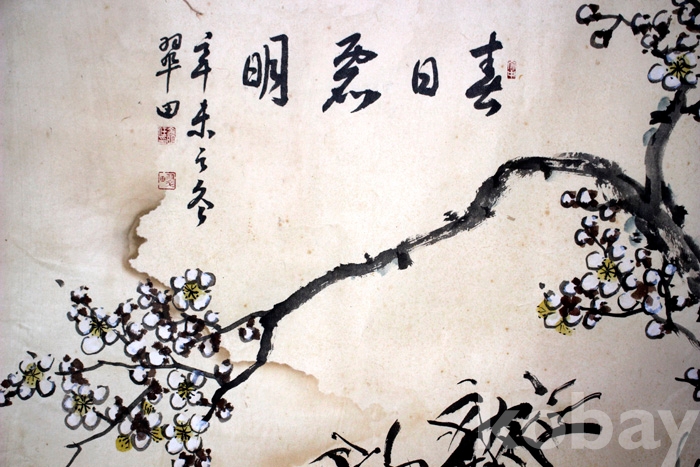 春日麗明
辛未之冬
翠田
kobay